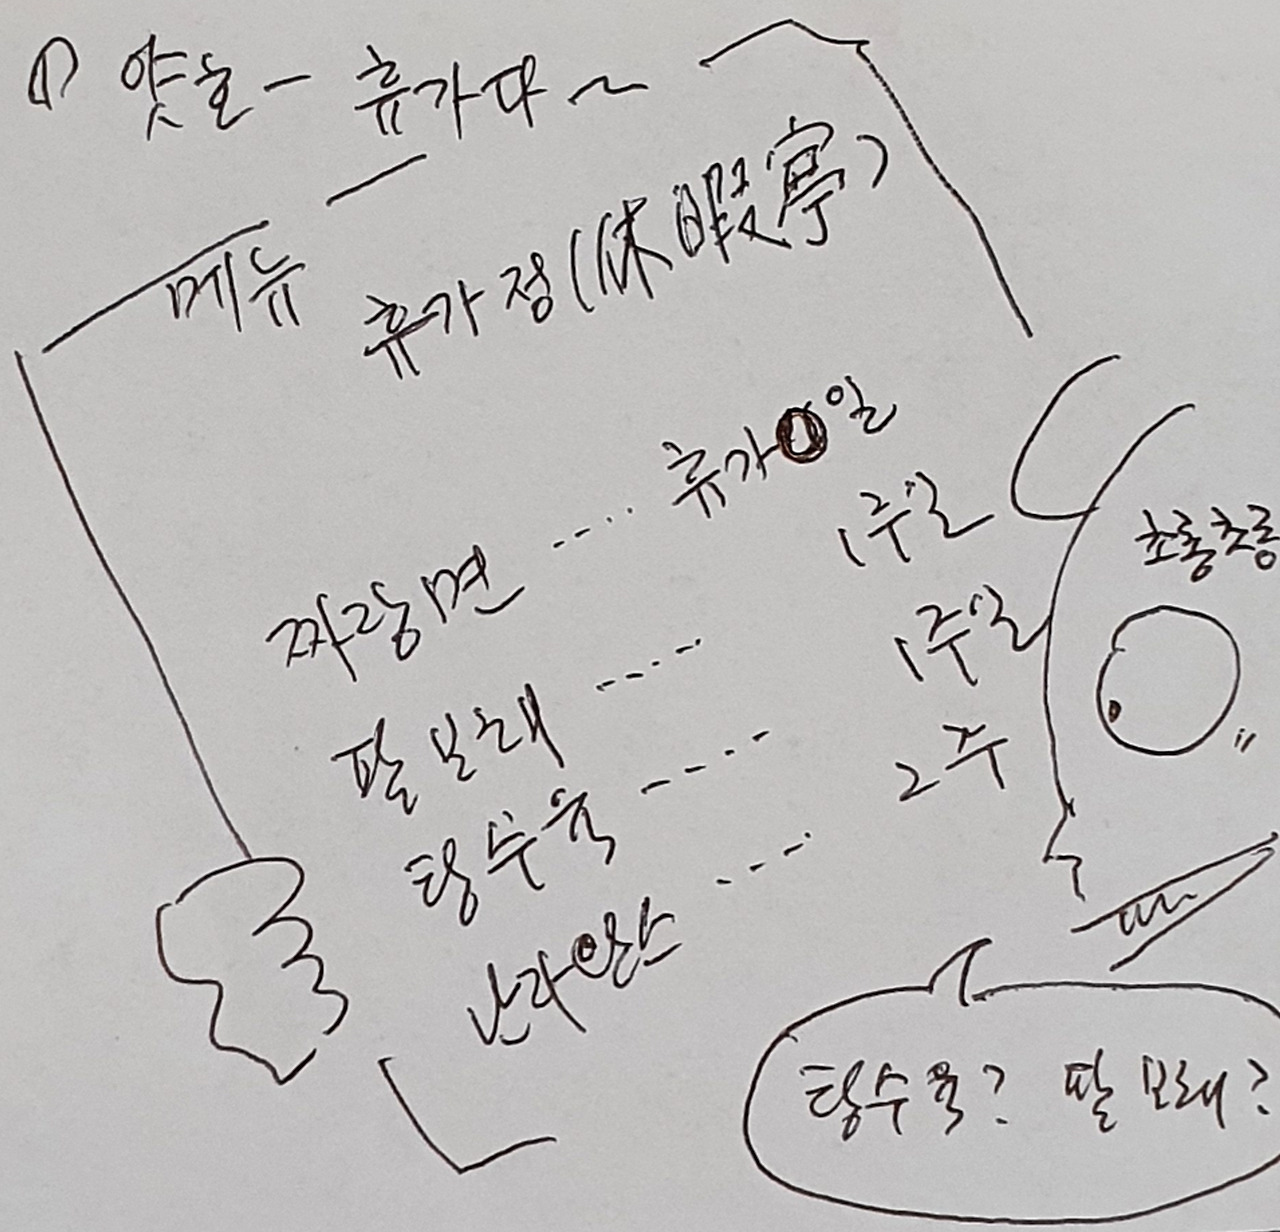 ① 얏호- 휴가다~
메뉴
휴가정(休暇亭)
짜장면 ···· 휴가 1일
팔보채 ····· 1주일
탕수육 ····· 1주일
난자완스 ···· 2주
초롱초롱
탕수육? 팔보채?